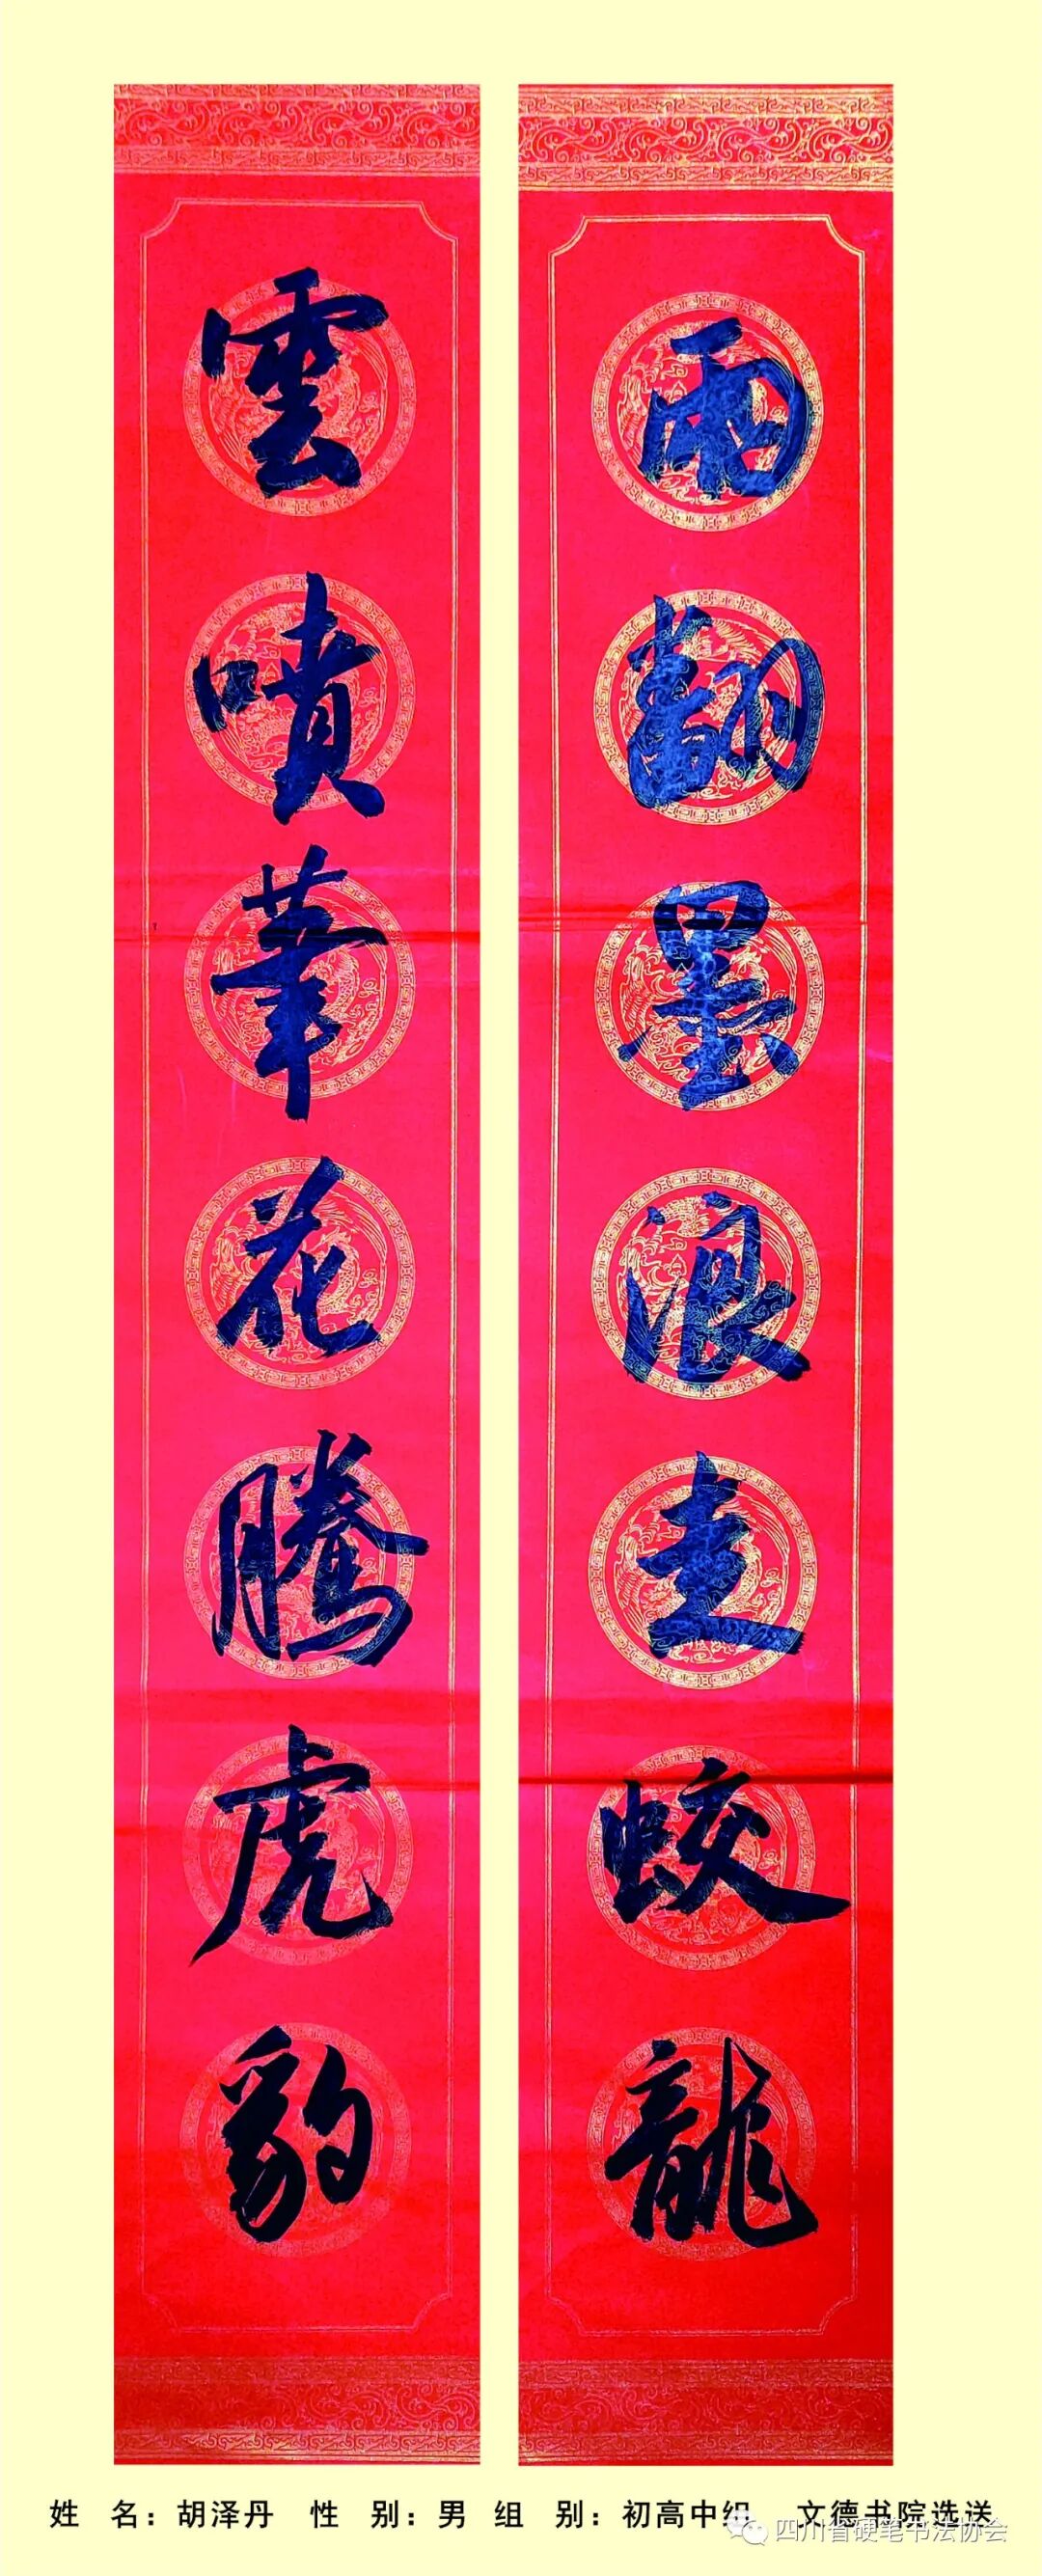 雨翻墨浪走蛟龍
雲噴筆花騰虎豹
姓 名：胡泽丹 性 别：男 组 别：初高中组 文德书院选送
四川省硬笔书法协会